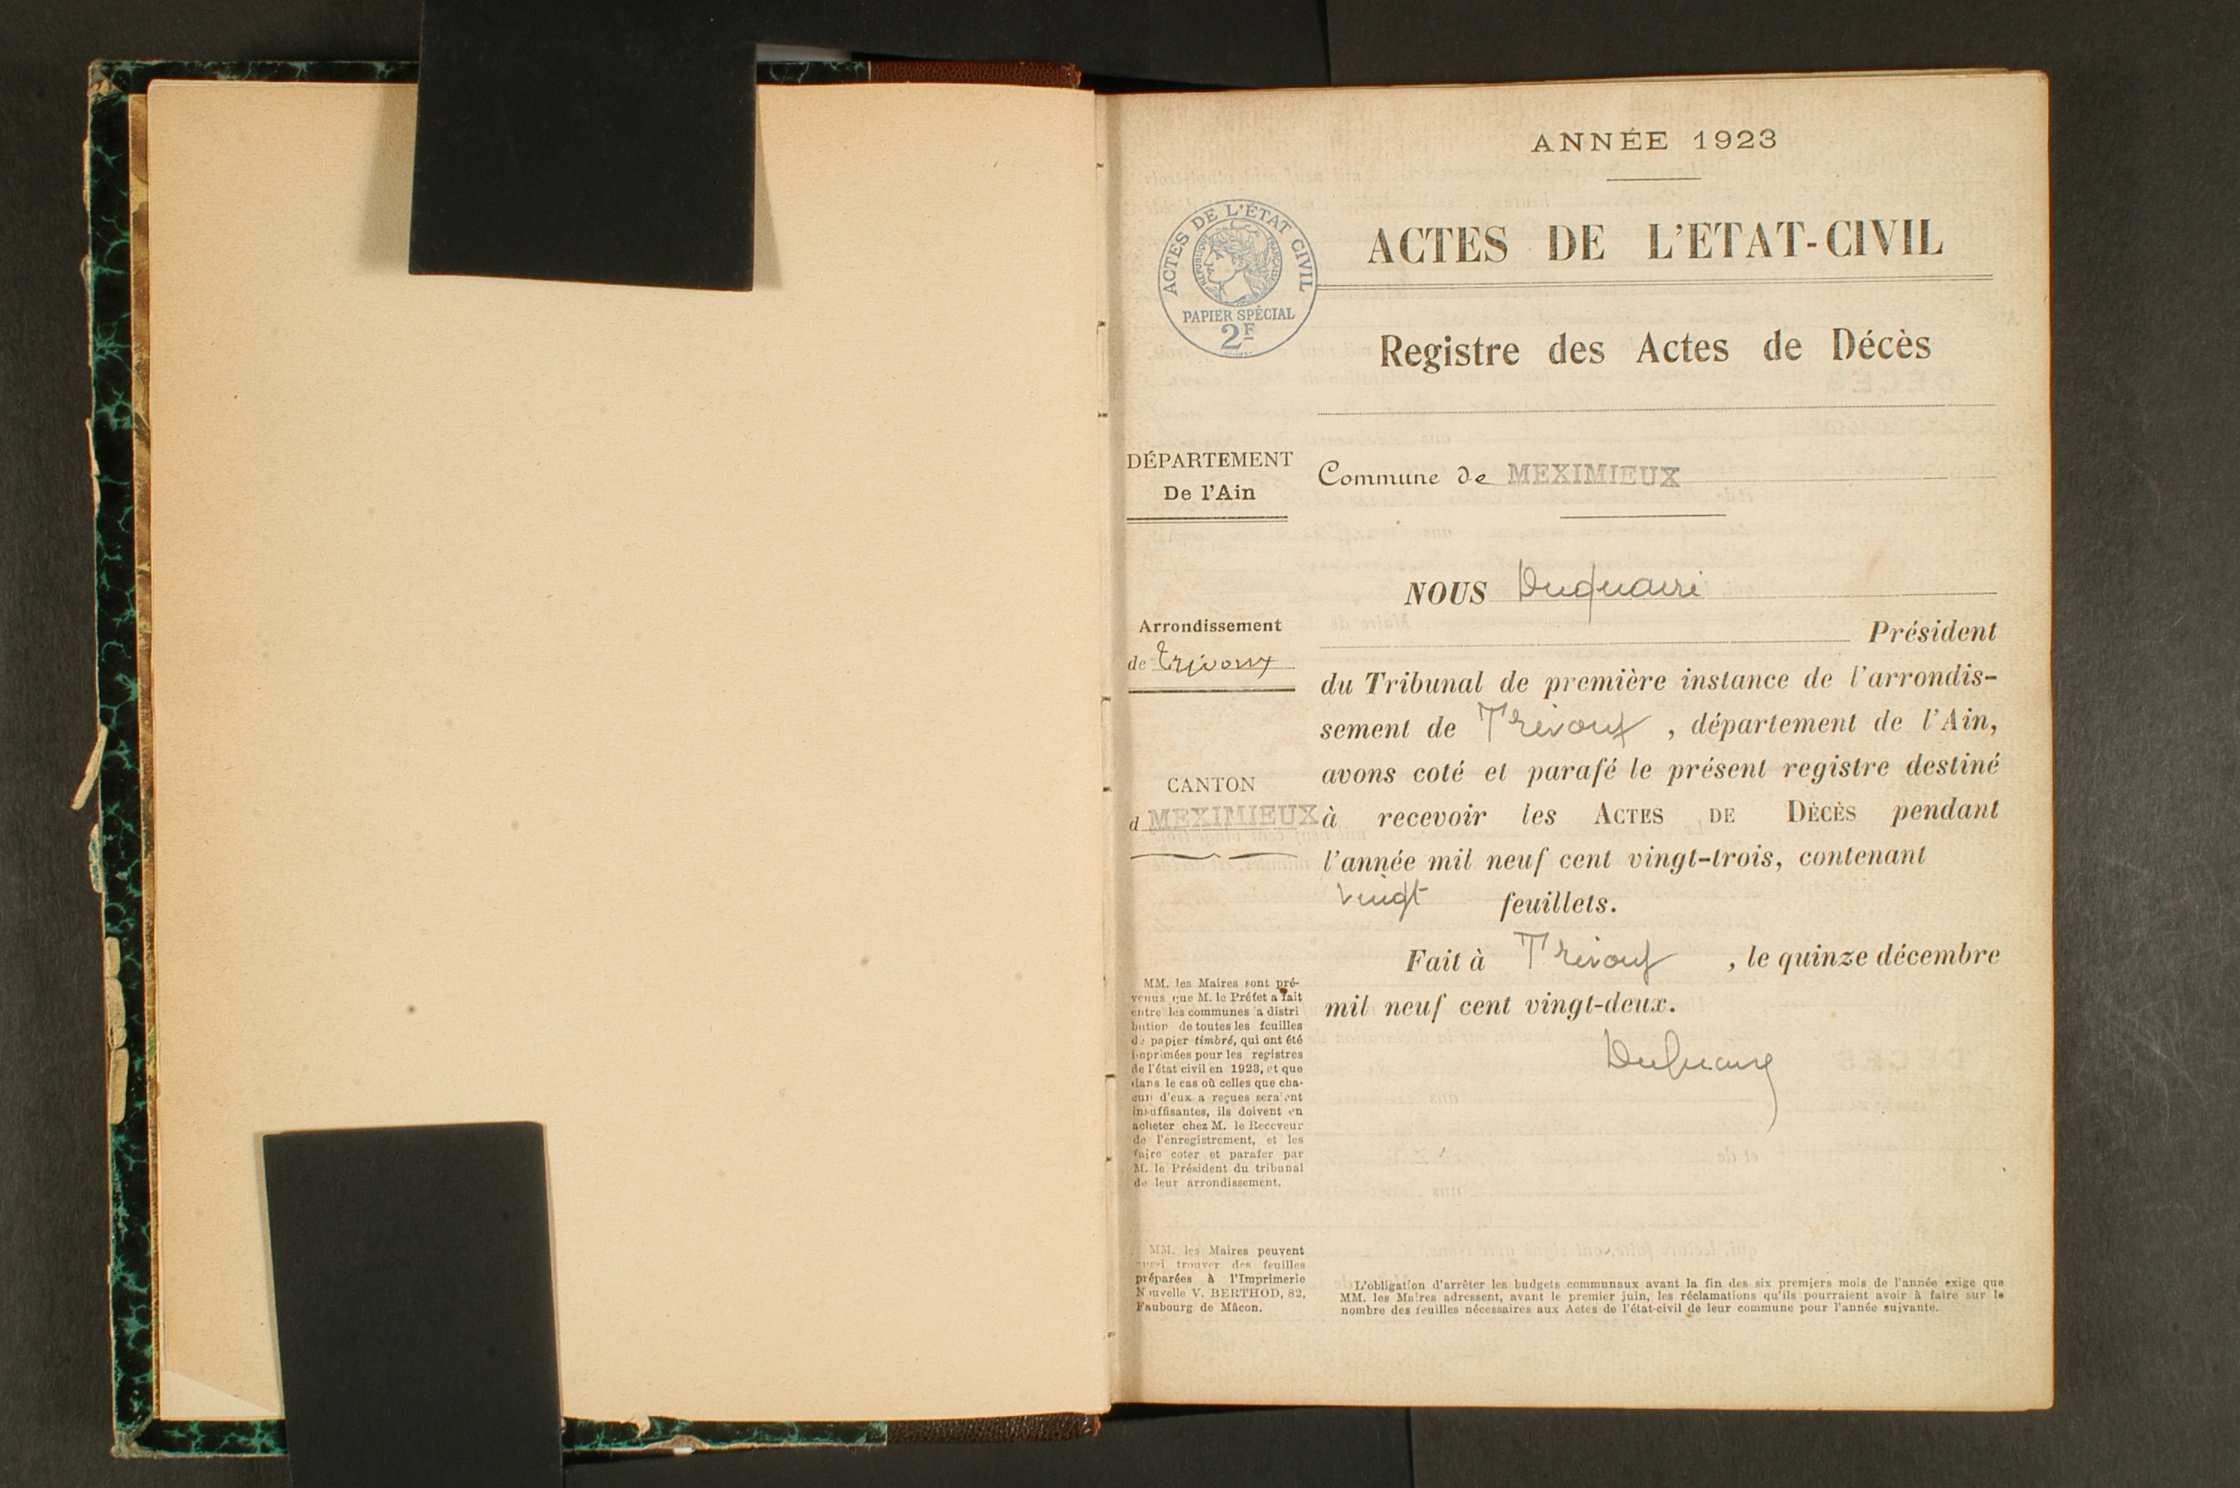 ANNÉE 1923
ACTES DE L'ÉTAT CIVIL
RÉPUBLIQUE FRANÇAISE
PAPIER SPÉCIAL
2F
ACTES DE L'ETAT-CIVIL
Registre des Actes de Décès
DÉPARTEMENT
De l'Ain
Commune de MEXIMIEUX
Arrondissement
de Trévoux
CANTON
d MEXIMIEUX
NOUS Duquaire
Président
du Tribunal de première instance de l'arrondis-
sement de Trévoux, département de l'Ain,
avons coté et parafé le présent registre destiné
à recevoir les ACTES DE DÉCÈS pendant
l'année mil neuf cent vingt-trois, contenant
vingt feuillets.
Fait à Trévoux, le quinze décembre
mil neuf cent vingt-deux.
Duquaire
MM. les Maires sont pré-
venus que M. le Préfet a fait
entre les communes a distri
bution de toutes les feuilles
de papier timbré, qui ont été
imprimées pour les registres
de l'état civil en 1923, et que
dans le cas où celles que cha-
cun d'eux a reçues seraient
insuffisantes, ils doivent en
acheter chez M. le Receveur
de l'enregistrement, et les
faire coter et parafer par
M. le Président du tribunal
de leur arrondissement.
MM. les Maires peuvent
aussi trouver des feuilles
préparées à l'Imprimerie
Nouvelle V. BERTHOD, 82,
Faubourg de Mâcon.
L'obligation d'arrêter les budgets communaux avant la fin des six premiers mois de l'année exige que
MM. les Maires adressent, avant le premier juin, les réclamations qu'ils pourraient avoir à faire sur le
nombre des feuilles nécessaires aux Actes de l'état-civil de leur commune pour l'année suivante.